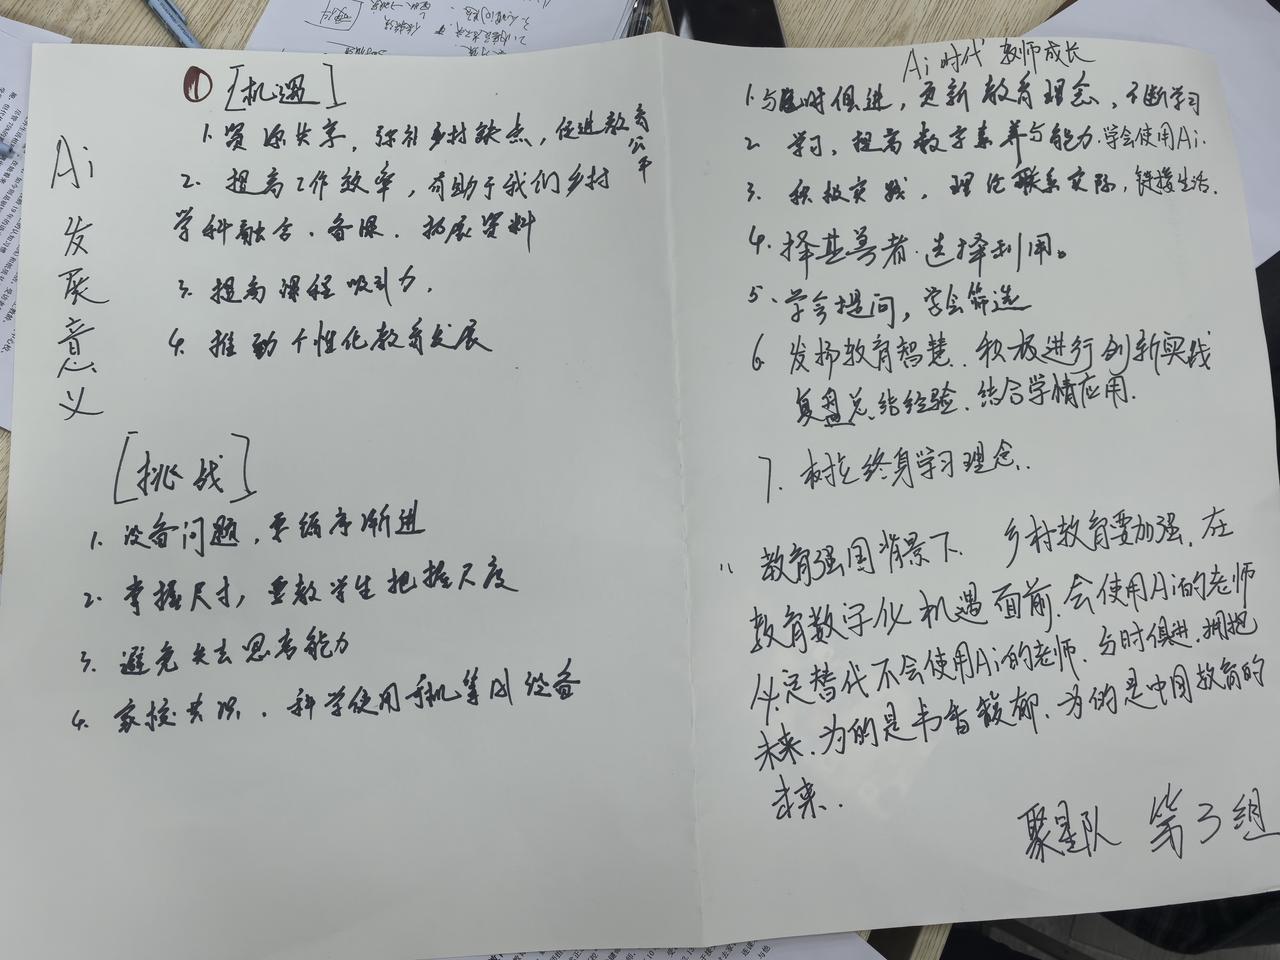 Ai发展意义
① [机遇]
1. 资源共享，弥补乡村缺点，促进教育公平
2. 提高工作效率，有助于我们乡村
学科融合、备课、拓展资料
3. 提高课程吸引力.
4. 推动个性化教育发展
[挑战]
1. 设备问题，要循序渐进
2. 掌握尺寸，要教学生把握尺度
3. 避免失去思考能力
4. 家校共识、科学使用手机等设备
Ai时代 教师成长
1.与时俱进，更新教育理念，不断学习
2. 学习，提高数字素养与能力.学会使用Ai.
3. 积极实践，理论联系实际，链接生活.
4.择其善者.选择利用。
5、学会提问，学会筛选
6 发扬教育智慧.积极进行创新实践
复盘总结经验.结合学情应用.
7. 树立终身学习理念..
教育强国背景下. 乡村教育要加强.在
教育数字化机遇面前.会使用Ai的老师
必定替代不会使用Ai的老师.与时俱进.拥抱
未来.为的是书香馥郁.为的是中国教育的
未来.
聚星队 第3组